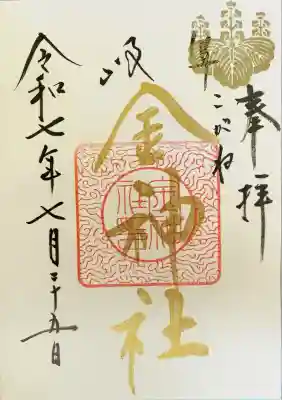 奉拝
こがね
金神社
岐
令和七年七月二十五日